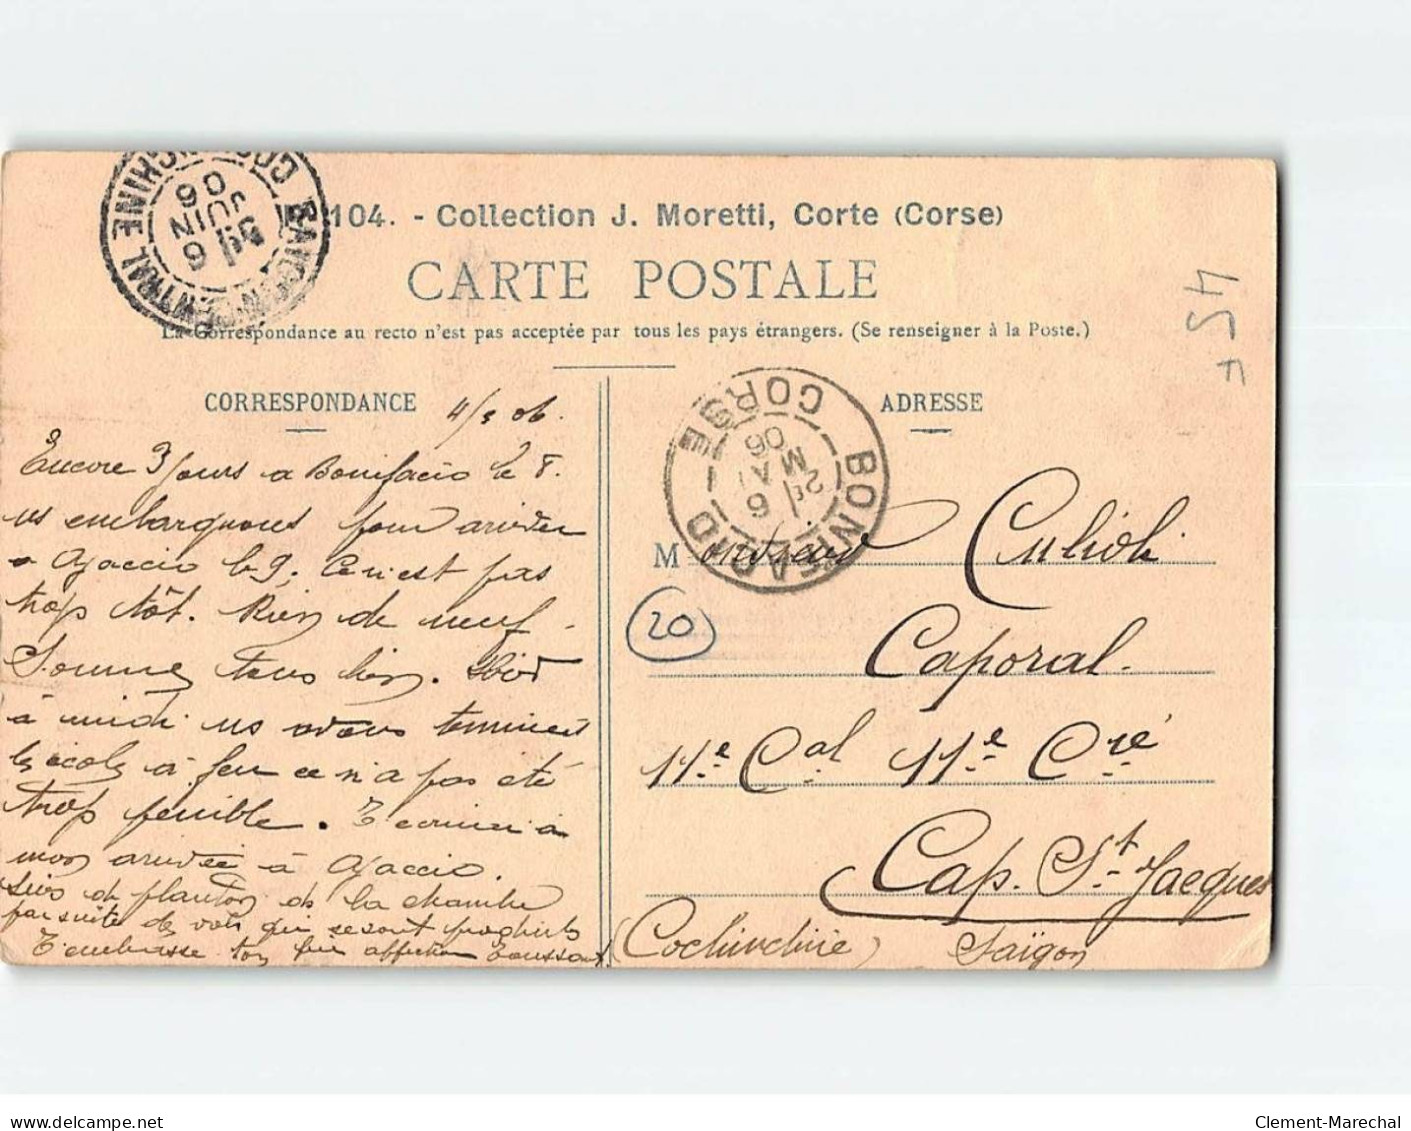 104. - Collection J. Moretti, Corte (Corse)
CARTE POSTALE
La Correspondance au recto n'est pas acceptée par tous les pays étrangers. (Se renseigner à la Poste.)
CORRESPONDANCE
4/5 06.
Encore 3 jours a Bonifacio le 8.
ns embarquons pour arriver
a Ajaccio le 9; Ce n'est pas
trop tôt. Rien de neuf.
Sommes tous bien.
à midi ns avons terminé
les écoles à feu ce n'a pas été
trop penible. T'ecrirai à
mon arrivée à Ajaccio.
Suis de planton de la chambre
par suite de vols qui se sont produits
T'embrasse ton affection
ADRESSE
Monsieur Culioli
Caporal.
11e Cal 11e Cie
Cap. St. Jacques
(Cochinchine) Saïgon
BONIFACIO
CORSE
2e
6
MAI
06
SAIGON CENTRAL
COCHINCHINE
6
JUIN
06
20
45
F
delcampe.net
Clement-Marechal